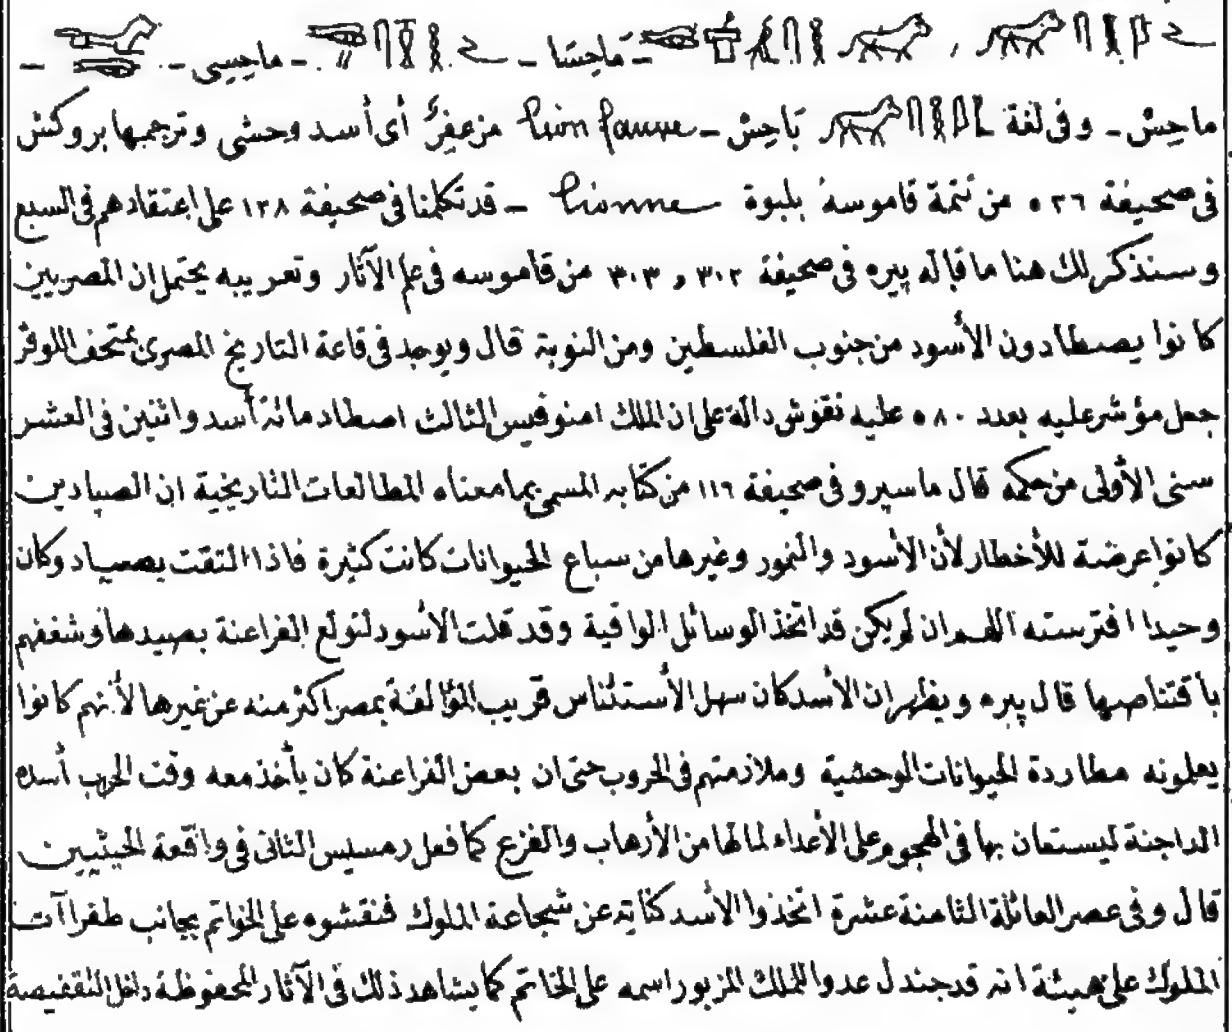 ماحِسَا - ماحِيسِى -
ماحِسْ - وفى لغة بَاحِسْ - lion fauve مزعفِرٌ أى أسد وحشى وترجمها بروكش
فى صحيفة ٥٢٦ من تتمة قاموسه بلبوة lionne - قد تكلمنا فى صحيفة ١٣٨ على اعتقادهم فى السبع
وسنذكر لك هنا ما قاله پيره فى صحيفة ٣٠٢ و ٣٠٣ من قاموسه فى علم الآثار وتعريبه يحتمل ان المصريين
كانوا يصطادون الأسود من جنوب الفلسطين ومن النوبة قال ويوجد فى قاعة التاريخ المصرى بمتحف اللوڤر
جعل مؤشر عليه بعدد ٥٨٠ عليه نقوش دالة على ان الملك امنوفيس الثالث اصطاد مائة أسد واثنين فى العشر
سنى الأولى من حكمه قال ماسپرو فى صحيفة ١١٦ من كتابه المسمى بما معناه المطالعات التاريخية ان الصيادين
كانوا عرضة للأخطار لأن الأسود والنمور وغيرها من سباع الحيوانات كانت كثيرة فاذا التقت بصياد وكان
وحيدا افترسته اللهم ان لم يكن قد اتخذ الوسائل الواقية وقد قلت الأسود لتولع الفراعنة بصيدها وشغفهم
باقتناصها قال پيره ويظهر ان الأسد كان سهل الأستئناس قريب المؤالفة بمصر اكثر منه عن غيرها لأنهم كانوا
يعلمونه مطاردة الحيوانات الوحشية وملازمتهم فى الحروب حتى ان بعض الفراعنة كان يأخذ معه وقت الحرب أسده
الداجنة ليستعان بها فى الهجوم على الأعداء لما لها من الأرهاب والفزع كما فعل رمسيس الثانى فى واقعة الحيثيين
قال وفى عصر العائلة الثامنة عشرة اتخذوا الأسد كناية عن شجاعة الملوك فنقشوه على الخواتم بجانب طغراآت
الملوك على هيئة انه قد جندل عدو الملك المزبور اسمه على الخاتم كما يشاهد ذلك فى الآثار المحفوظة داخل